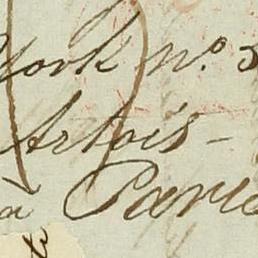 York no. 3
Artois -
à Paris